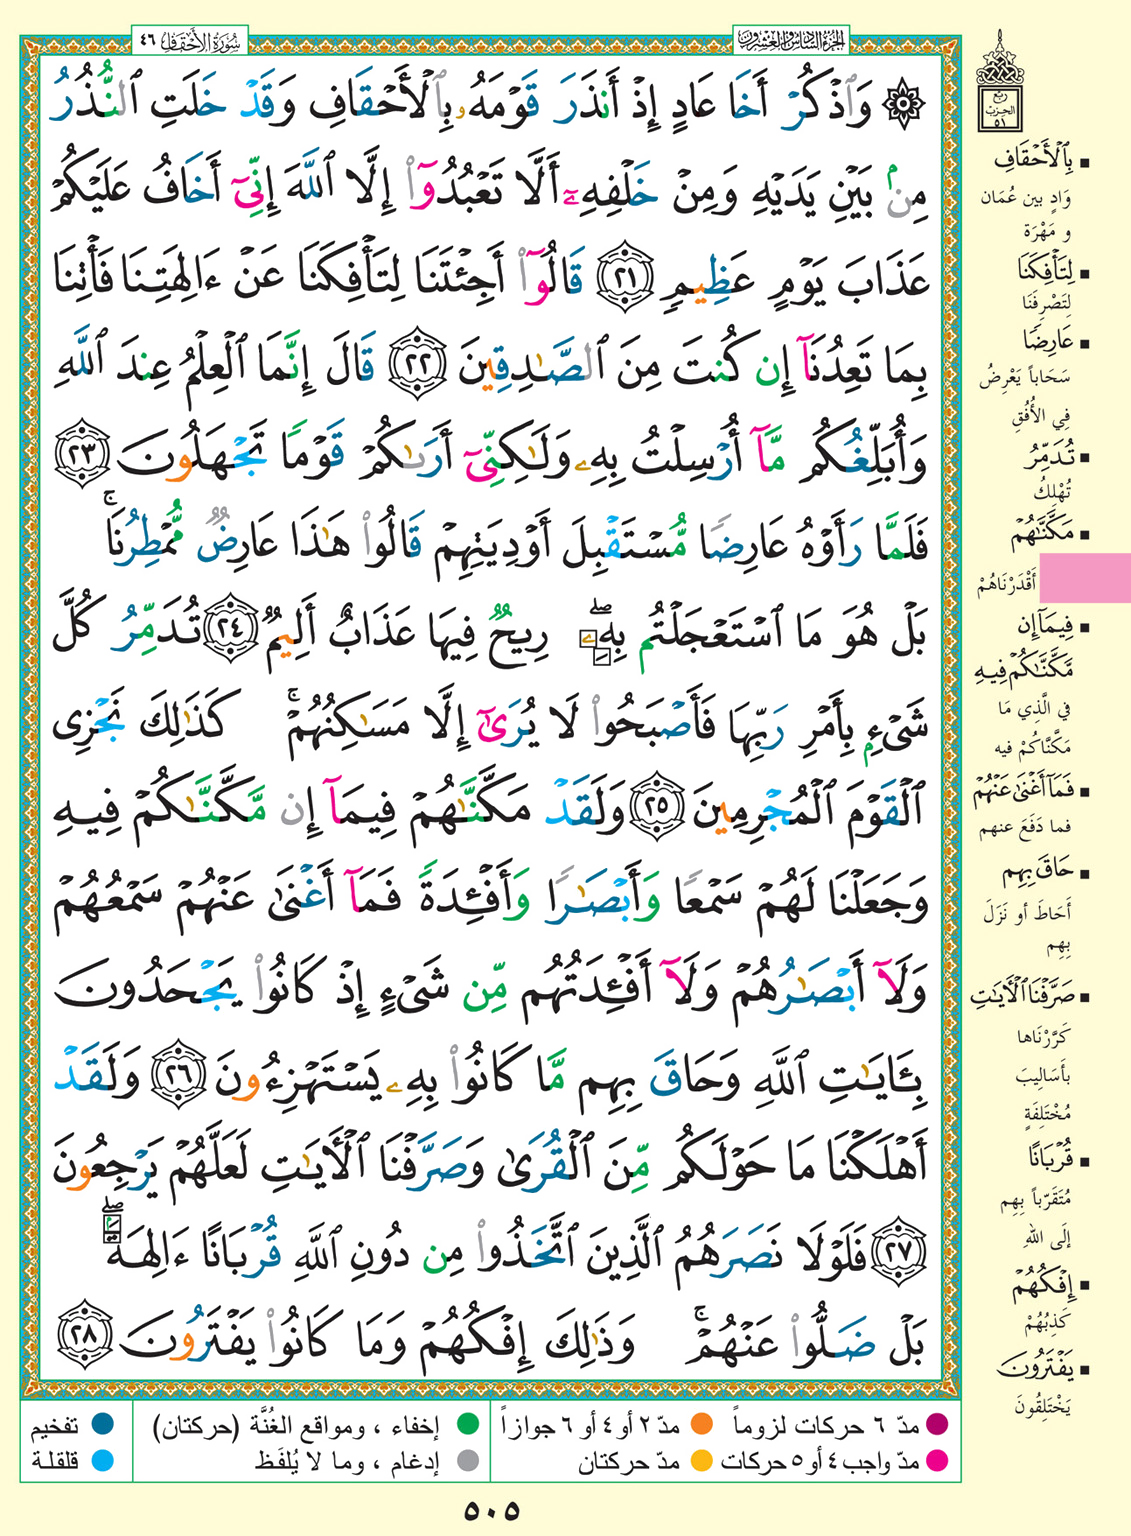 الجزء السادس والعشرون
سُورَةُ الأَحْقَافِ ٤٦
۞ وَٱذْكُرْ أَخَا عَادٍ إِذْ أَنذَرَ قَوْمَهُۥ بِٱلْأَحْقَافِ وَقَدْ خَلَتِ ٱلنُّذُرُ
مِنۢ بَيْنِ يَدَيْهِ وَمِنْ خَلْفِهِۦٓ أَلَّا تَعْبُدُوٓا۟ إِلَّا ٱللَّهَ إِنِّىٓ أَخَافُ عَلَيْكُمْ
عَذَابَ يَوْمٍ عَظِيمٍ ٢١ قَالُوٓا۟ أَجِئْتَنَا لِتَأْفِكَنَا عَنْ ءَالِهَتِنَا فَأْتِنَا
بِمَا تَعِدُنَآ إِن كُنتَ مِنَ ٱلصَّـٰدِقِينَ ٢٢ قَالَ إِنَّمَا ٱلْعِلْمُ عِندَ ٱللَّهِ
وَأُبَلِّغُكُم مَّآ أُرْسِلْتُ بِهِۦ وَلَـٰكِنِّىٓ أَرَىٰكُمْ قَوْمًا تَجْهَلُونَ ٢٣
فَلَمَّا رَأَوْهُ عَارِضًا مُّسْتَقْبِلَ أَوْدِيَتِهِمْ قَالُوا۟ هَـٰذَا عَارِضٌ مُّمْطِرُنَا ۚ
بَلْ هُوَ مَا ٱسْتَعْجَلْتُم بِهِۦ ۖ رِيحٌ فِيهَا عَذَابٌ أَلِيمٌ ٢٤ تُدَمِّرُ كُلَّ
شَىْءٍۭ بِأَمْرِ رَبِّهَا فَأَصْبَحُوا۟ لَا يُرَىٰٓ إِلَّا مَسَـٰكِنُهُمْ ۚ كَذَٰلِكَ نَجْزِى
ٱلْقَوْمَ ٱلْمُجْرِمِينَ ٢٥ وَلَقَدْ مَكَّنَّـٰهُمْ فِيمَآ إِن مَّكَّنَّـٰكُمْ فِيهِ
وَجَعَلْنَا لَهُمْ سَمْعًا وَأَبْصَـٰرًا وَأَفْـِٔدَةً فَمَآ أَغْنَىٰ عَنْهُمْ سَمْعُهُمْ
وَلَآ أَبْصَـٰرُهُمْ وَلَآ أَفْـِٔدَتُهُم مِّن شَىْءٍ إِذْ كَانُوا۟ يَجْحَدُونَ
بِـَٔايَـٰتِ ٱللَّهِ وَحَاقَ بِهِم مَّا كَانُوا۟ بِهِۦ يَسْتَهْزِءُونَ ٢٦ وَلَقَدْ
أَهْلَكْنَا مَا حَوْلَكُم مِّنَ ٱلْقُرَىٰ وَصَرَّفْنَا ٱلْـَٔايَـٰتِ لَعَلَّهُمْ يَرْجِعُونَ
٢٧ فَلَوْلَا نَصَرَهُمُ ٱلَّذِينَ ٱتَّخَذُوا۟ مِن دُونِ ٱللَّهِ قُرْبَانًا ءَالِهَةًۢ ۖ
بَلْ ضَلُّوا۟ عَنْهُمْ ۚ وَذَٰلِكَ إِفْكُهُمْ وَمَا كَانُوا۟ يَفْتَرُونَ ٢٨
ربع
الحزب
٥١
بِٱلْأَحْقَافِ
وَادٍ بين عُمَان
و مَهْرَة
لِتَأْفِكَنَا
لِتَصْرِفَنَا
عَارِضًا
سَحَاباً يَعْرِضُ
فِي الأُفُقِ
تُدَمِّرُ
تُهْلِكُ
مَكَّنَّـٰهُمْ
أَقْدَرْنَاهُمْ
فِيمَآ إِن
مَّكَّنَّـٰكُمْ فِيهِ
في الَّذِي مَا
مَكَّنَّاكُمْ فيه
فَمَآ أَغْنَىٰ عَنْهُمْ
فما دَفَعَ عنهم
حَاقَ بِهِم
أَحَاطَ أو نَزَلَ
بِهِم
صَرَّفْنَا ٱلْـَٔايَـٰتِ
كَرَّرْنَاها
بأَسَالِيبَ
مُخْتَلِفَةٍ
قُرْبَانًا
مُتَقَرّباً بِهِم
إلَى اللهِ
إِفْكُهُمْ
كَذِبُهُمْ
يَفْتَرُونَ
يَخْتَلِقُونَ
مدّ ٦ حركات لزوماً
مدّ ٢ أو ٤ أو ٦ جوازاً
إخفاء ، ومواقع الغُنَّة (حركتان)
تفخيم
مدّ واجب ٤ أو ٥ حركات
مدّ حركتان
إدغام ، وما لا يُلفَظ
قلقلة
٥٠٥